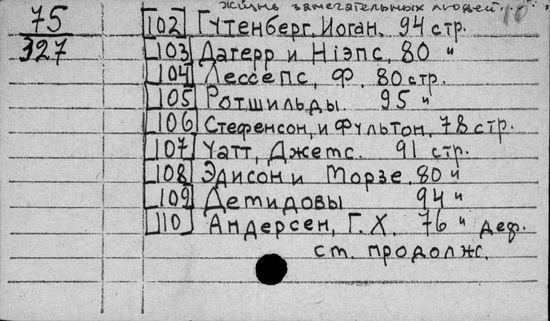 жизнь замечательных людей. 10
75 [102] Гутенберг, Иоган. 94 стр.
327 [103] Дагерр и Ніэпс, 80 "
[104] Лессепс, Ф. 80 стр.
[105] Ротшильды 95 "
[106] Стефенсон, и Фультон. 78 стр.
[107] Уатт, Джемс. 91 стр.
[108] Эдисон и Морзе. 80 "
[109] Демидовы 94 "
[110] Андерсен, Г. Х. 76 " деф.
см. продолж.